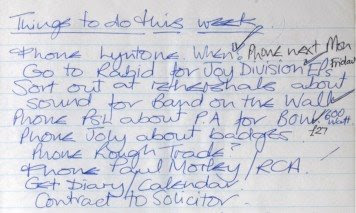 Things to do this week.
Phone Lyntone. When? Phone next Mon
Go to Rabid for Joy Division EPs Friday
Sort out at rehearsals about
sound for Band on the Wall
Phone PSL about P.A for BOW 600 watt
Phone Joly about badges. £27
Phone Rough Trade?
Phone Paul Morley/RCA.
Get Diary/Calendar
Contract to Solicitor.